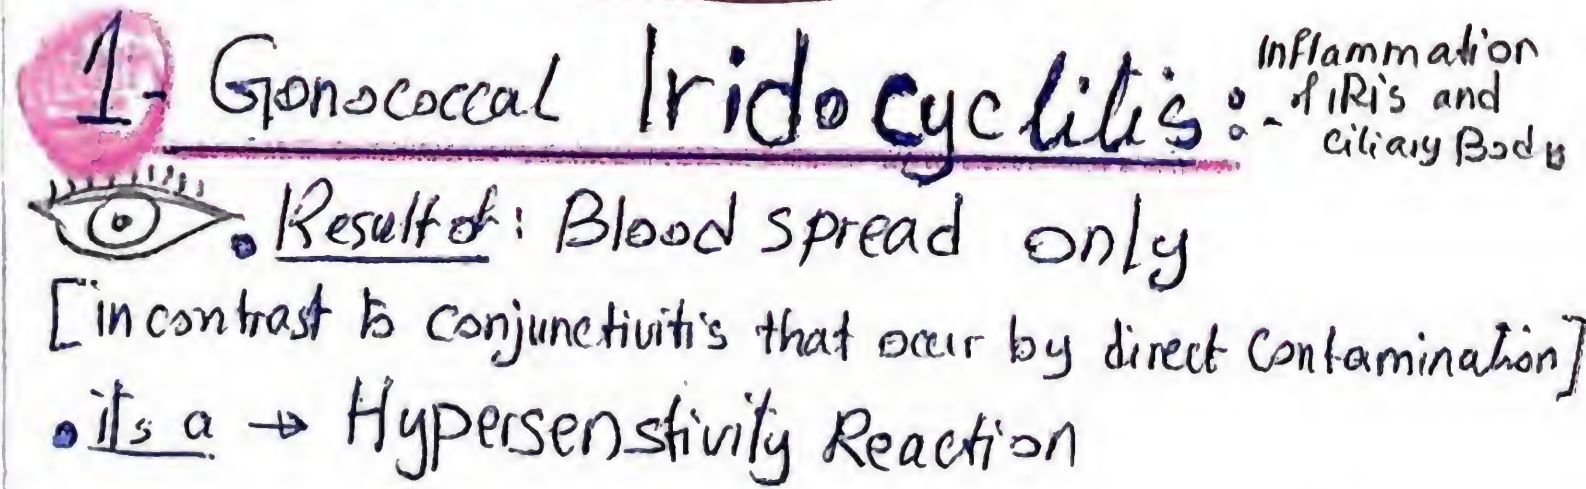 1- Gonococcal Iridocyclitis :-
Inflammation
of IRis and
ciliary Body
• Result of : Blood spread only
[in contrast to conjunctivitis that occur by direct Contamination]
• it's a → Hypersenstivity Reaction